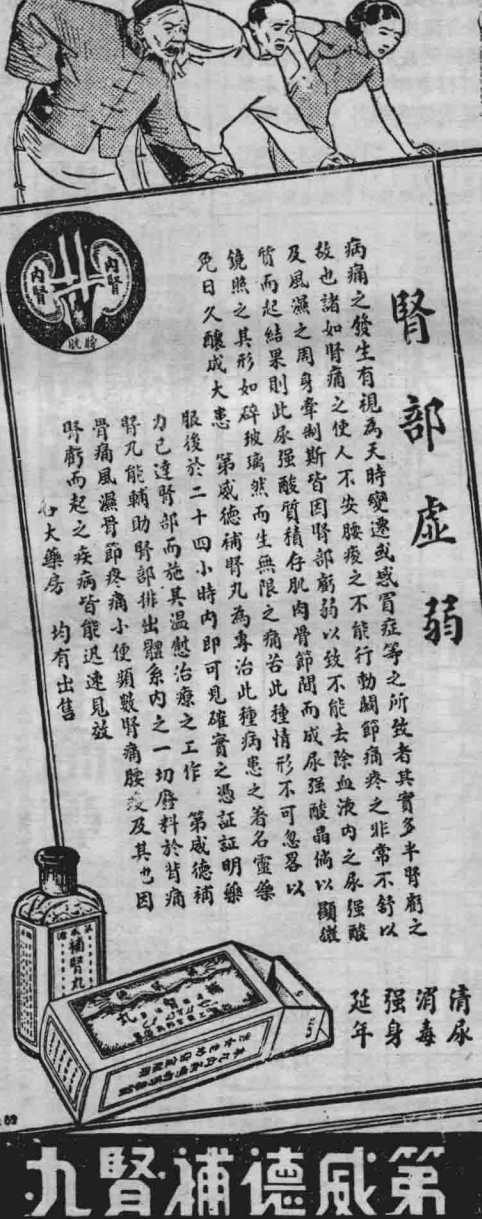 內腎
內腎
膀胱
腎部虛弱
病痛之發生有視為天時變遷或感冒症等之所致者其實多半腎虧之
故也諸如腎痛之使人不安腰痠之不能行動關節痛疼之非常不舒以
及風濕之周身牽制斯皆因腎部虧弱以致不能去除血液內之尿强酸
質而起結果則此尿强酸質積存肌肉骨節間而成尿强酸晶倘以顯微
鏡照之其形如碎玻璃然而生無限之痛苦此種情形不可忽畧以
免日久釀成大患　第威德補腎丸為專治此種病患之著名靈藥
服後於二十四小時內即可見確實之憑証証明藥
力已達腎部而施其溫慰治療之工作　第威德補
腎丸能輔助腎部排出體系內之一切廢料於背痛
骨痛風濕骨節疼痛小便頻數腎痛腰痠及其他因
腎虧而起之疾病皆能迅速見效
各大藥房　均有出售
清尿
消毒
强身
延年
補腎丸
第威德補腎丸